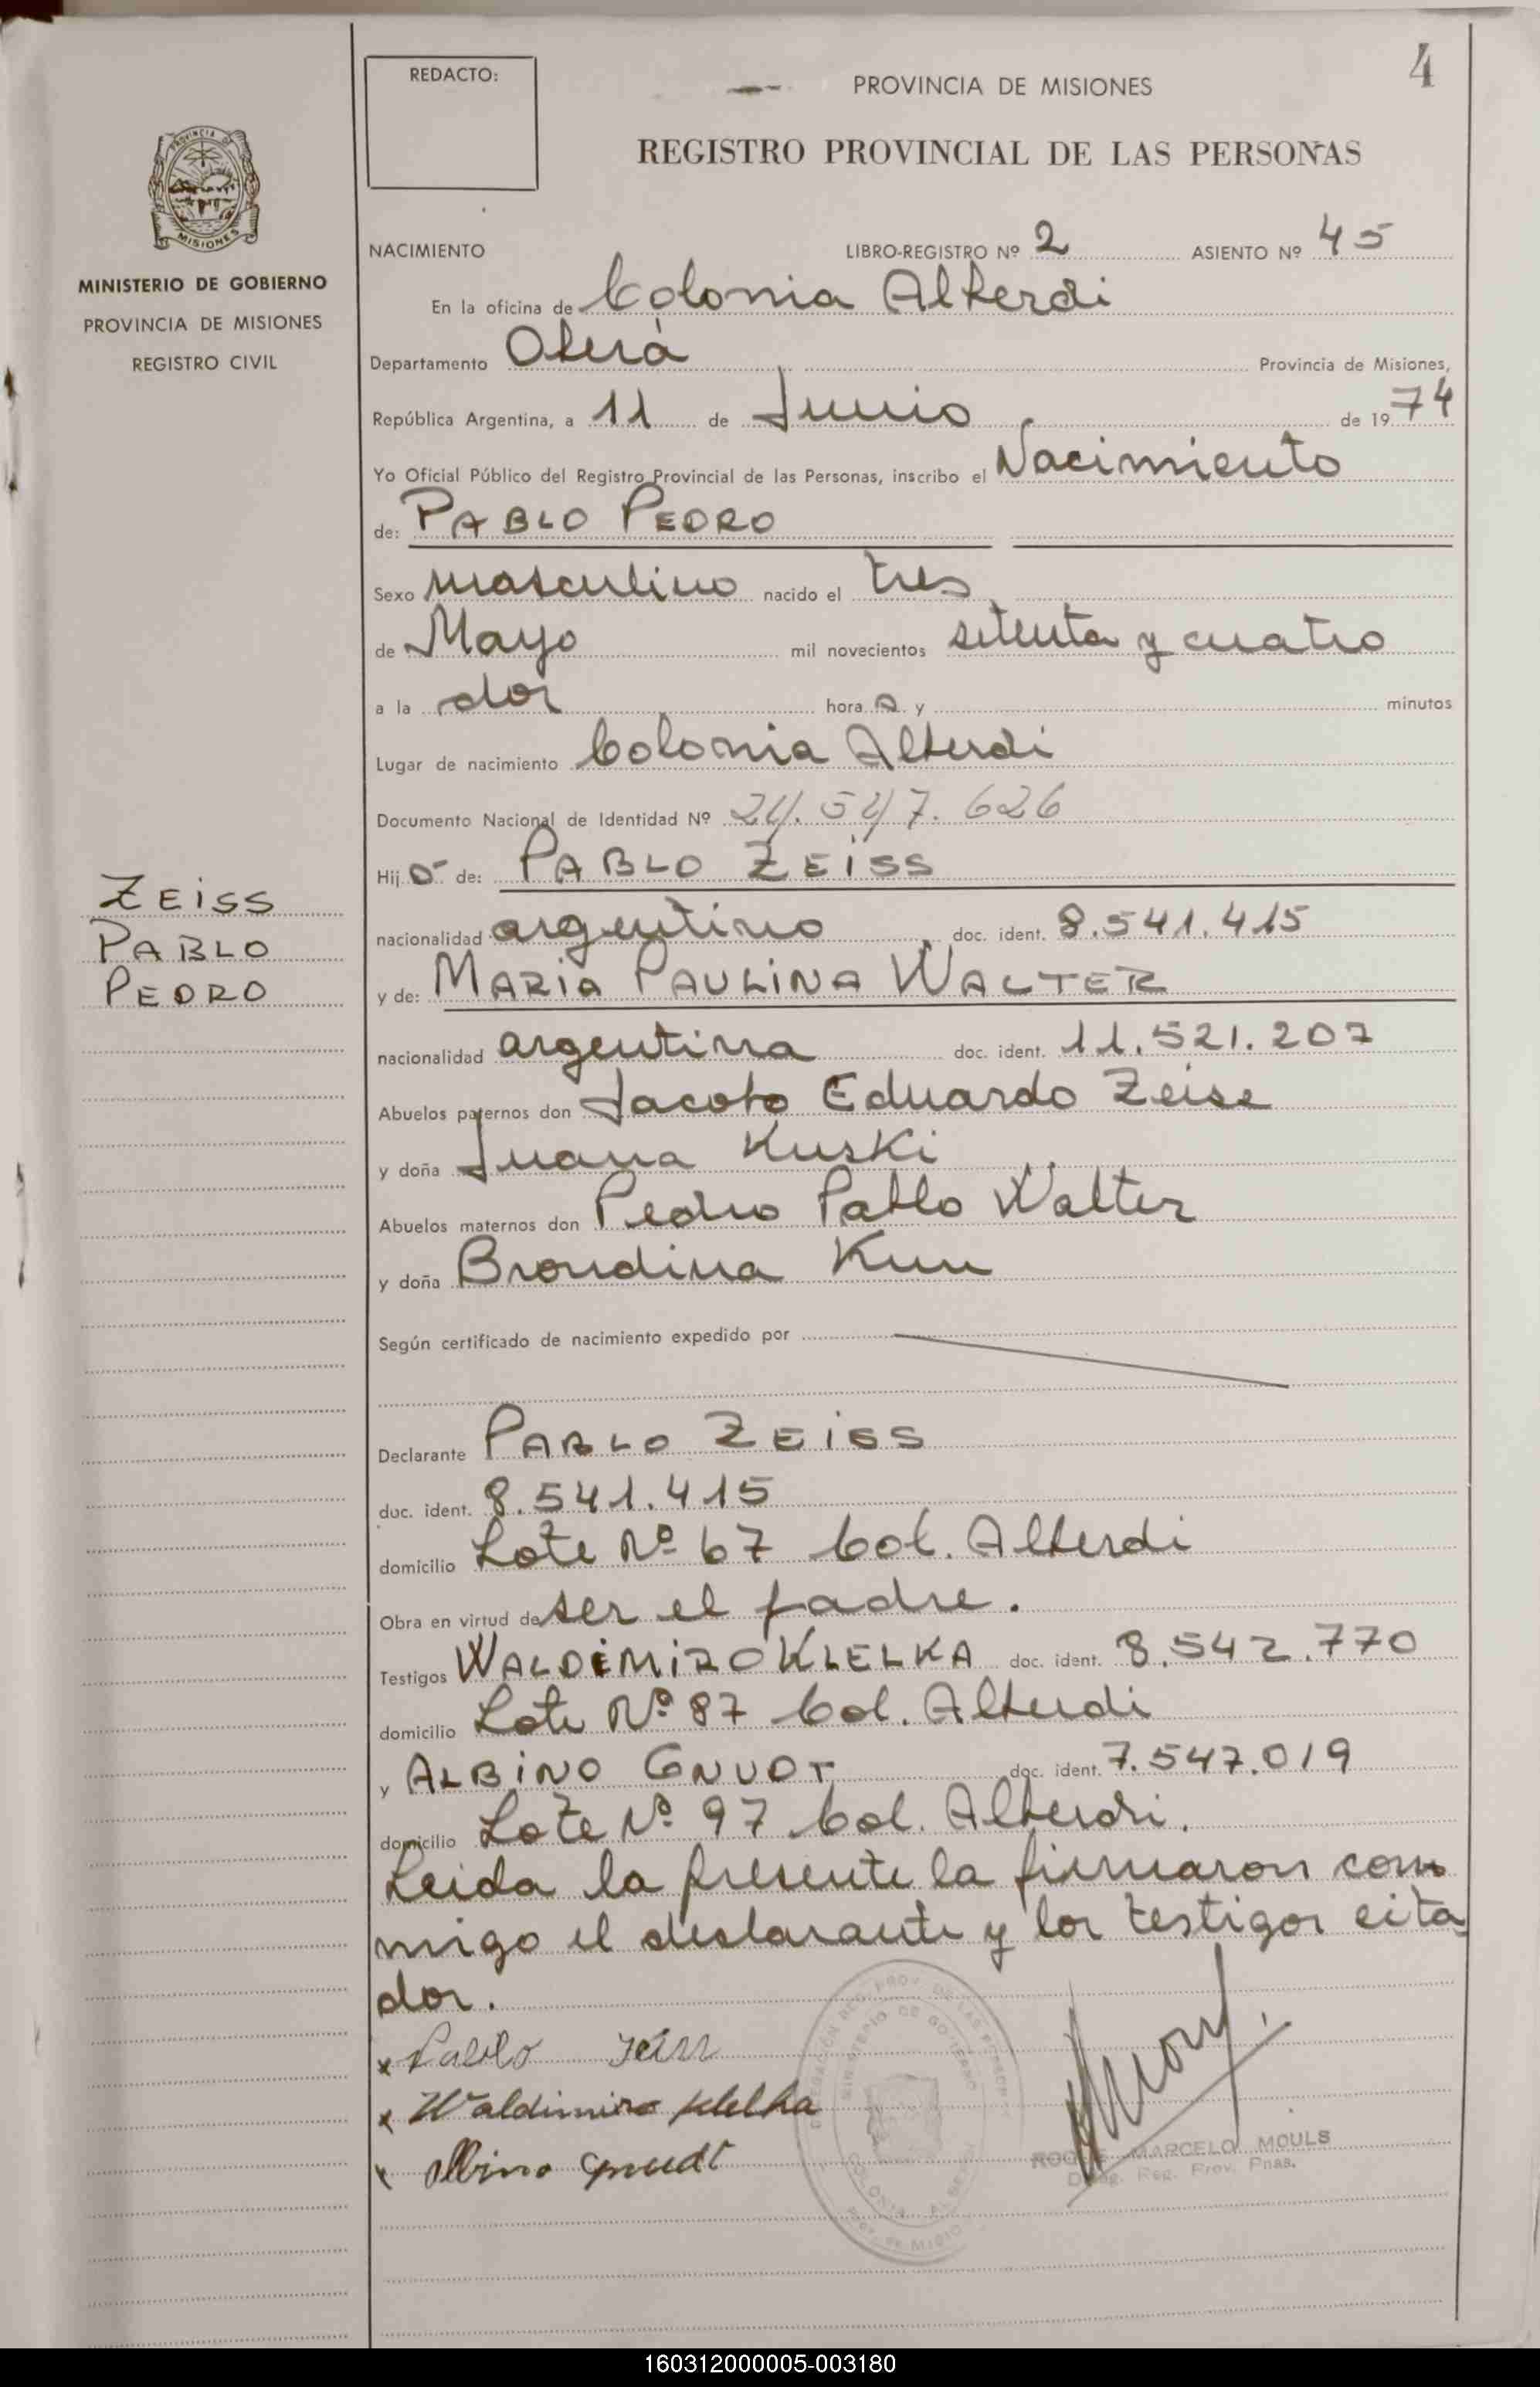 4
REDACTO:
PROVINCIA DE MISIONES
REGISTRO PROVINCIAL DE LAS PERSONAS
PROVINCIA DE
MISIONES
MINISTERIO DE GOBIERNO
PROVINCIA DE MISIONES
REGISTRO CIVIL
NACIMIENTO LIBRO-REGISTRO Nº 2 ASIENTO Nº 45
En la oficina de Colonia Alberdi
Departamento Oberá Provincia de Misiones,
República Argentina, a 11 de Junio de 1974
Yo Oficial Público del Registro Provincial de las Personas, inscribo el Nacimiento
de: PABLO PEDRO
Sexo masculino nacido el tres
de Mayo mil novecientos setenta y cuatro
a la dos hora A y minutos
Lugar de nacimiento Colonia Alberdi
Documento Nacional de Identidad Nº 24.547.626
Hijo de: PABLO ZEISS
ZEISS
PABLO
PEDRO
nacionalidad argentino doc. ident. 8.541.415
y de: MARIA PAULINA WALTER
nacionalidad argentina doc. ident. 11.521.207
Abuelos paternos don Jacobo Eduardo Zeise
y doña Juana Kuski
Abuelos maternos don Pedro Pablo Walter
y doña Brondina Kun
Según certificado de nacimiento expedido por
Declarante PABLO ZEISS
doc. ident. 8.541.415
domicilio Lote Nº 67 Col. Alberdi
Obra en virtud de ser el padre.
Testigos WALDIMIRO KLELKA doc. ident. 8.542.770
domicilio Lote Nº 87 Col. Alberdi
y ALBINO GNUDT doc. ident. 7.547.019
domicilio Lote Nº 97 Col. Alberdi.
Leida la presente la firmaron con
migo el declarante y los testigos cita
dos.
x Pablo Zeiss
x Waldimiro Klelka
x Albino Gnudt
MINISTERIO DE GOBIERNO
COLONIA ALBERDI
ROQUE MARCELO MOULS
Deleg. Reg. Prov. Pnas.
160312000005-003180